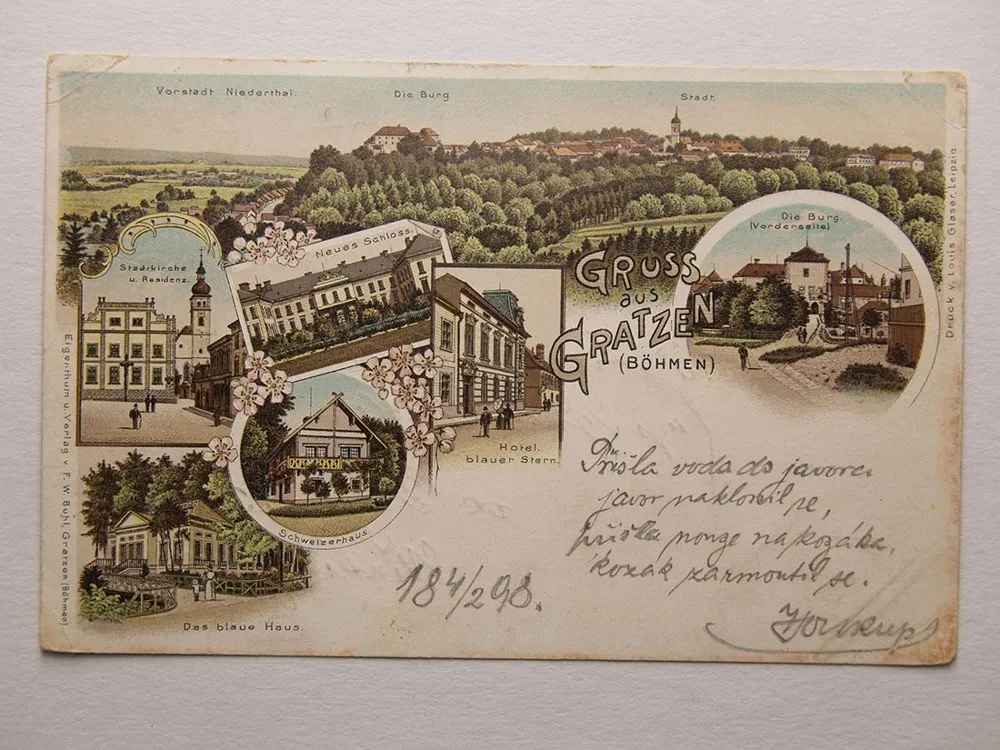 Vorstadt Niederthal.
Die Burg
Stadt
Stadtkirche
u. Residenz.
Neues Schloss.
Hotel.
blauer Stern.
Schweizerhaus.
Das blaue Haus.
GRUSS
aus
GRATZEN
(BÖHMEN)
Die Burg.
(Vorderseite)
Přišla voda do javora
javor naklonil se,
přišla nouze na kozáka,
kozák zarmoutil se.
18 4/2 98.
Eigenthum u. Verlag v. F. W. Buhl, Gratzen (Böhmen)
Druck v. Louis Glaser, Leipzig